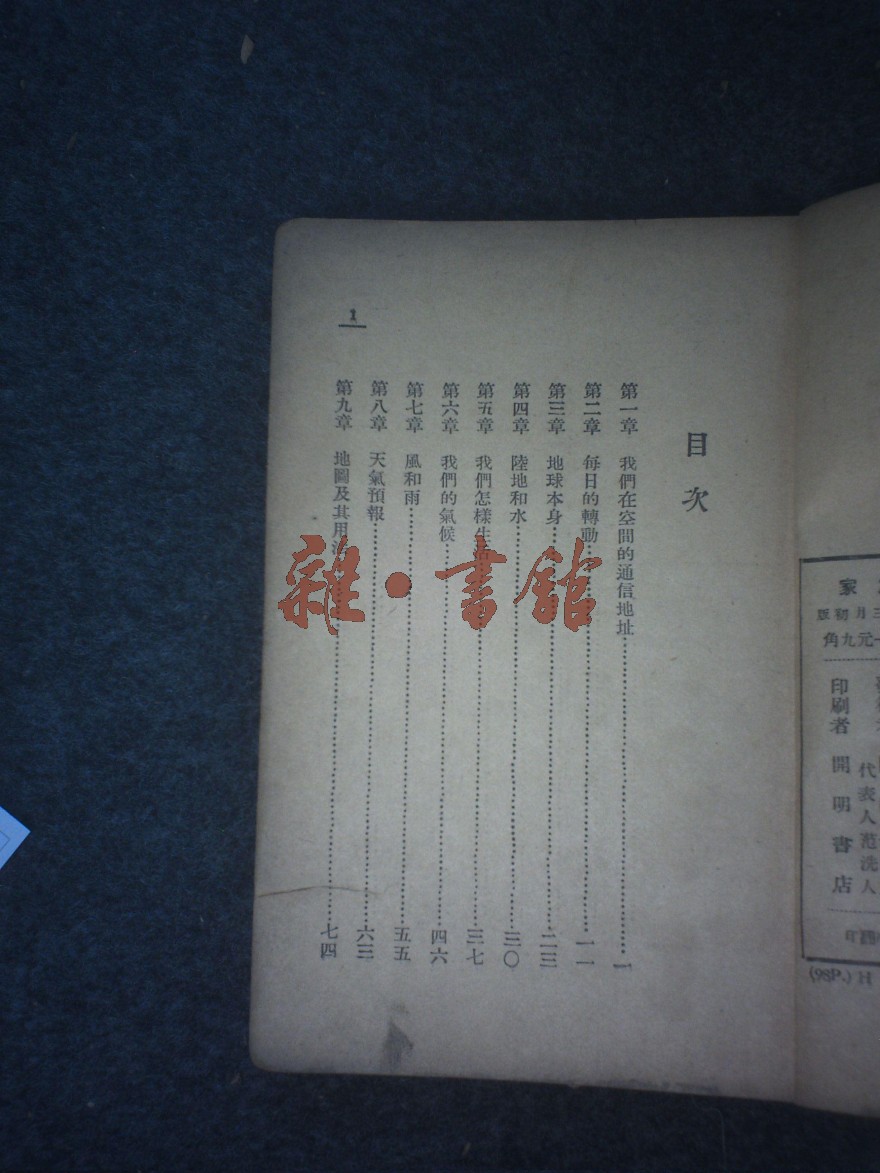 目次
第一章 我們在空間的通信地址……一
第二章 每日的轉動……一一
第三章 地球本身……二三
第四章 陸地和水……三〇
第五章 我們怎樣生活……三七
第六章 我們的氣候……四六
第七章 風和雨……五五
第八章 天氣預報……六三
第九章 地圖及其用法……七四
1
雜·書館
家
三月初版
元九角
代表人范洗人
印刷者 開明書店
(98P.) H